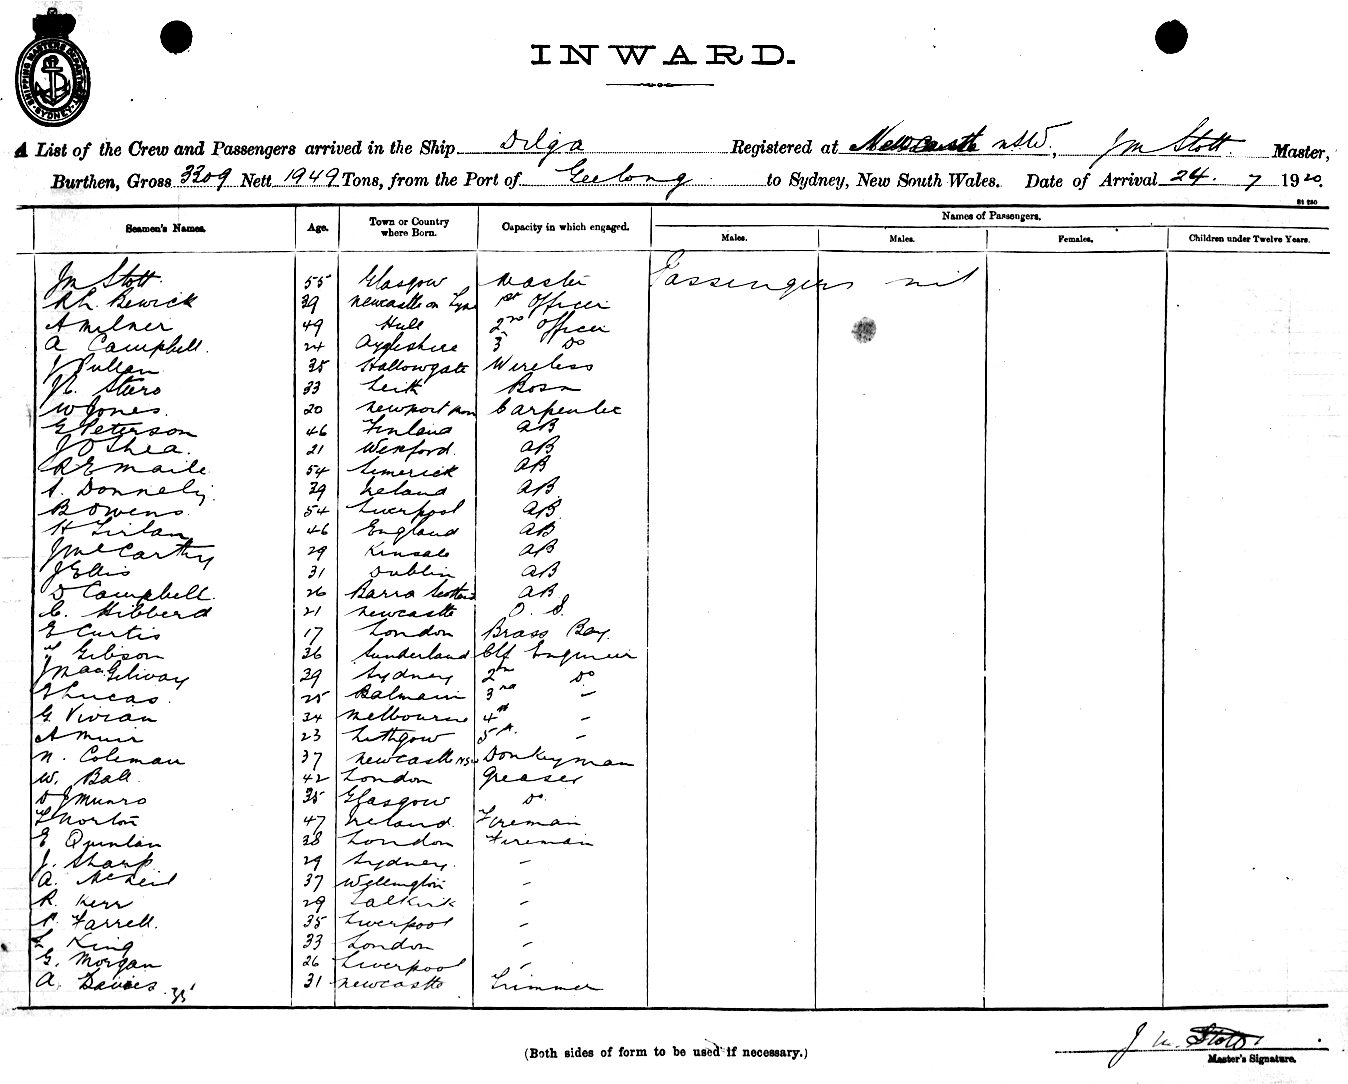 SHIPPING MASTERS DEPARTMENT SYDNEY
INWARD.
A List of the Crew and Passengers arrived in the Ship Dilga Registered at Newcastle NSW, Jm Stott Master,
Burthen, Gross 3309 Nett 1949 Tons, from the Port of Geelong to Sydney, New South Wales. Date of Arrival 24. 7 1920.
Seamen's Names. Age. Town or Country where Born. Capacity in which engaged. Names of Passengers.
Males. Males. Females. Children under Twelve Years.
Jm Stott 55 Glasgow Master Passengers nil
Rh. Bewick 39 Newcastle on Tyne 1st Officer
A Milner 49 Hull 2nd Officer
A Campbell. 24 3 Do
J Pullan 35 Wireless
Steers 33 Leith Bosn
W Jones. 20 Newport Mon Carpenter
G Peterson 46 Finland AB
J O Shea. 21 Wexford. AB
R E Maile 54 Limerick AB
Donnely 39 Ireland AB
B Owens. 54 Liverpool AB
H 46 England AB
J McCarthy 29 Kinsale AB
J Ellis 31 Dublin AB
D Campbell. 26 Barra Scotland AB
C. Hibberd 21 Newcastle O. S.
E Curtis 17 London Brass Boy.
T Gibson 36 Sunderland Clf Engineer
J MacGilivay 39 Sydney 2nd Do
Lucas. 25 Balmain 3rd -
G. Vivian 34 Melbourne 4th -
A Muir 23 Lithgow 5th. -
N. Coleman 37 Newcastle NSW Donkeyman
W. Ball. 42 London Greaser
D J Munro 35 Glasgow Do.
T Norton 47 Ireland. Fireman
E Quinlan 38 London Fireman
J. Sharp. 29 Sydney. -
A. McNeil 37 Wellington -
R. Kerr 29 Falkirk -
P. Farrell. 35 Liverpool -
King 33 London -
G. Morgan 26 Liverpool -
A. Davies. 35 31 Newcastle Trimmer
(Both sides of form to be used if necessary.)
J M. Stott
Master's Signature.